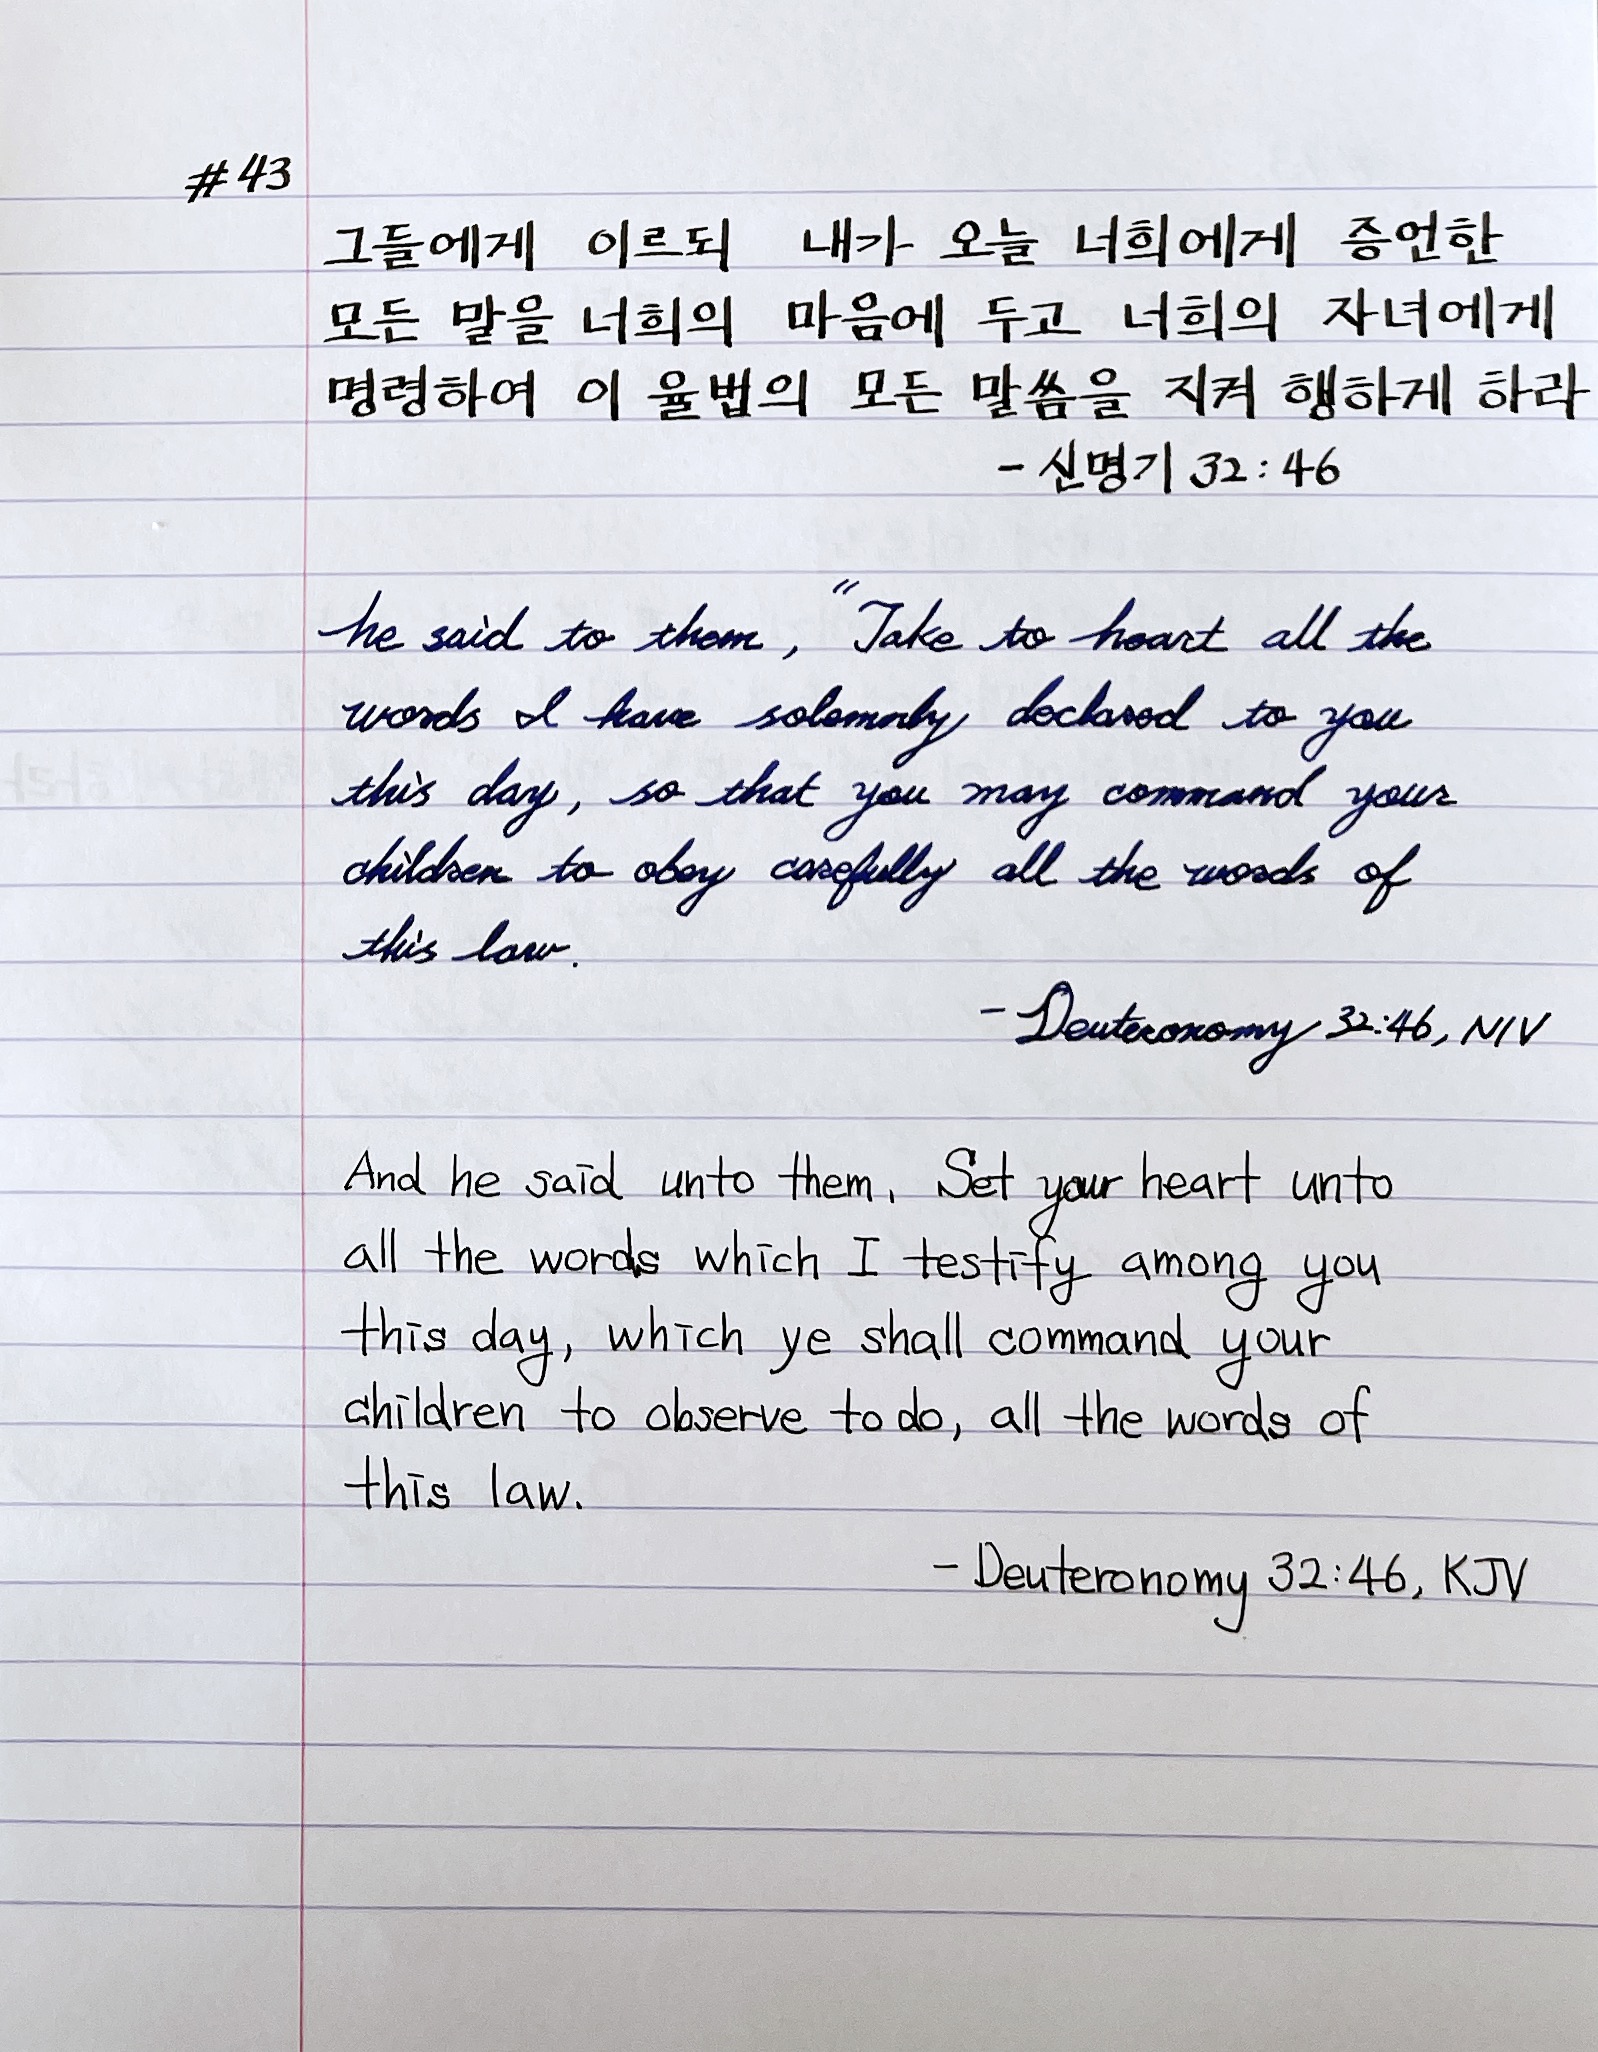 #43
그들에게 이르되 내가 오늘 너희에게 증언한
모든 말을 너희의 마음에 두고 너희의 자녀에게
명령하여 이 율법의 모든 말씀을 지켜 행하게 하라
- 신명기 32:46
he said to them, "Take to heart all the
words I have solemnly declared to you
this day, so that you may command your
children to obey carefully all the words of
this law.
- Deuteronomy 32:46, NIV
And he said unto them, Set your heart unto
all the words which I testify among you
this day, which ye shall command your
children to observe to do, all the words of
this law.
- Deuteronomy 32:46, KJV